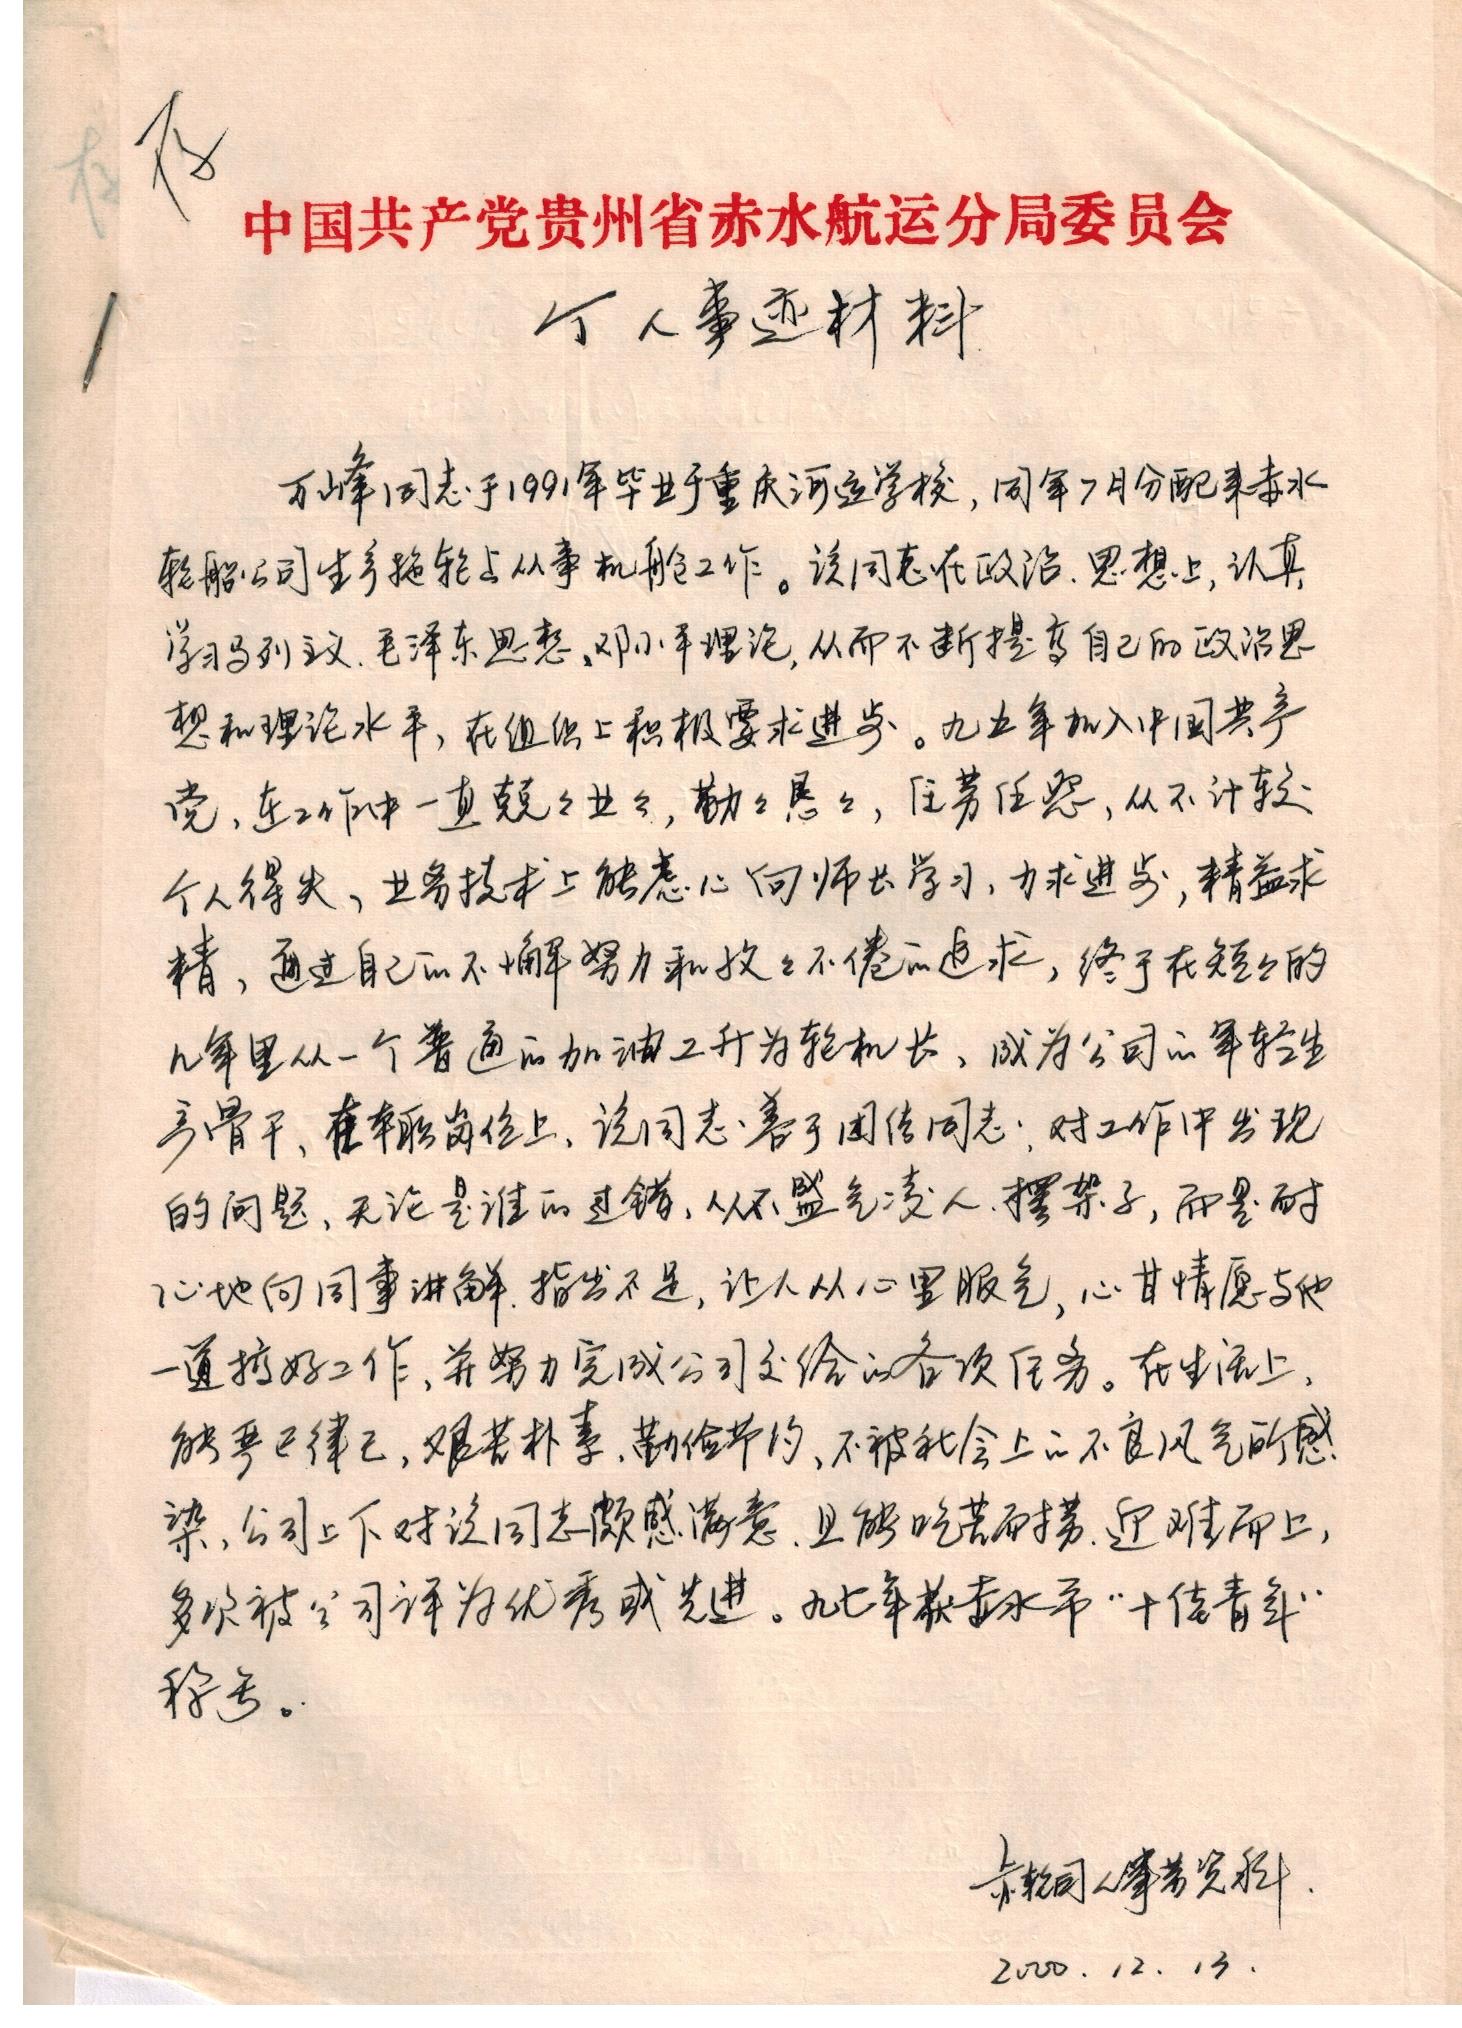 存
中国共产党贵州省赤水航运分局委员会
个人事迹材料
万峰同志于1991年毕业于重庆河运学校，同年7月分配来赤水
轮船公司生产拖轮上从事机舱工作。该同志在政治、思想上，认真
学习马列主义、毛泽东思想、邓小平理论，从而不断提高自己的政治思
想和理论水平，在组织上积极要求进步。九五年加入中国共产
党，在工作中一直兢々业々，勤々恳々，任劳任怨，从不计较
个人得失，业务技术上能虚心向师长学习，力求进步，精益求
精，通过自己的不懈努力和孜々不倦的追求，终于在短々的
几年里从一个普通的加油工升为轮机长，成为公司的年轻生
产骨干，在本职岗位上，该同志善于团结同志，对工作中出现
的问题，无论是谁的过错，从不盛气凌人、摆架子，而是耐
心地向同事讲解、指出不足，让人从心里服气，心甘情愿与他
一道搞好工作，并努力完成公司交给的各项任务。在生活上，
能严己律己，艰苦朴素、勤俭节约，不被社会上的不良风气所感
染，公司上下对该同志颇感满意，且能吃苦耐劳、迎难而上，
多次被公司评为优秀或先进。九七年获赤水市“十佳青年”
称号。
赤轮司人事劳资科.
2000.12.13.